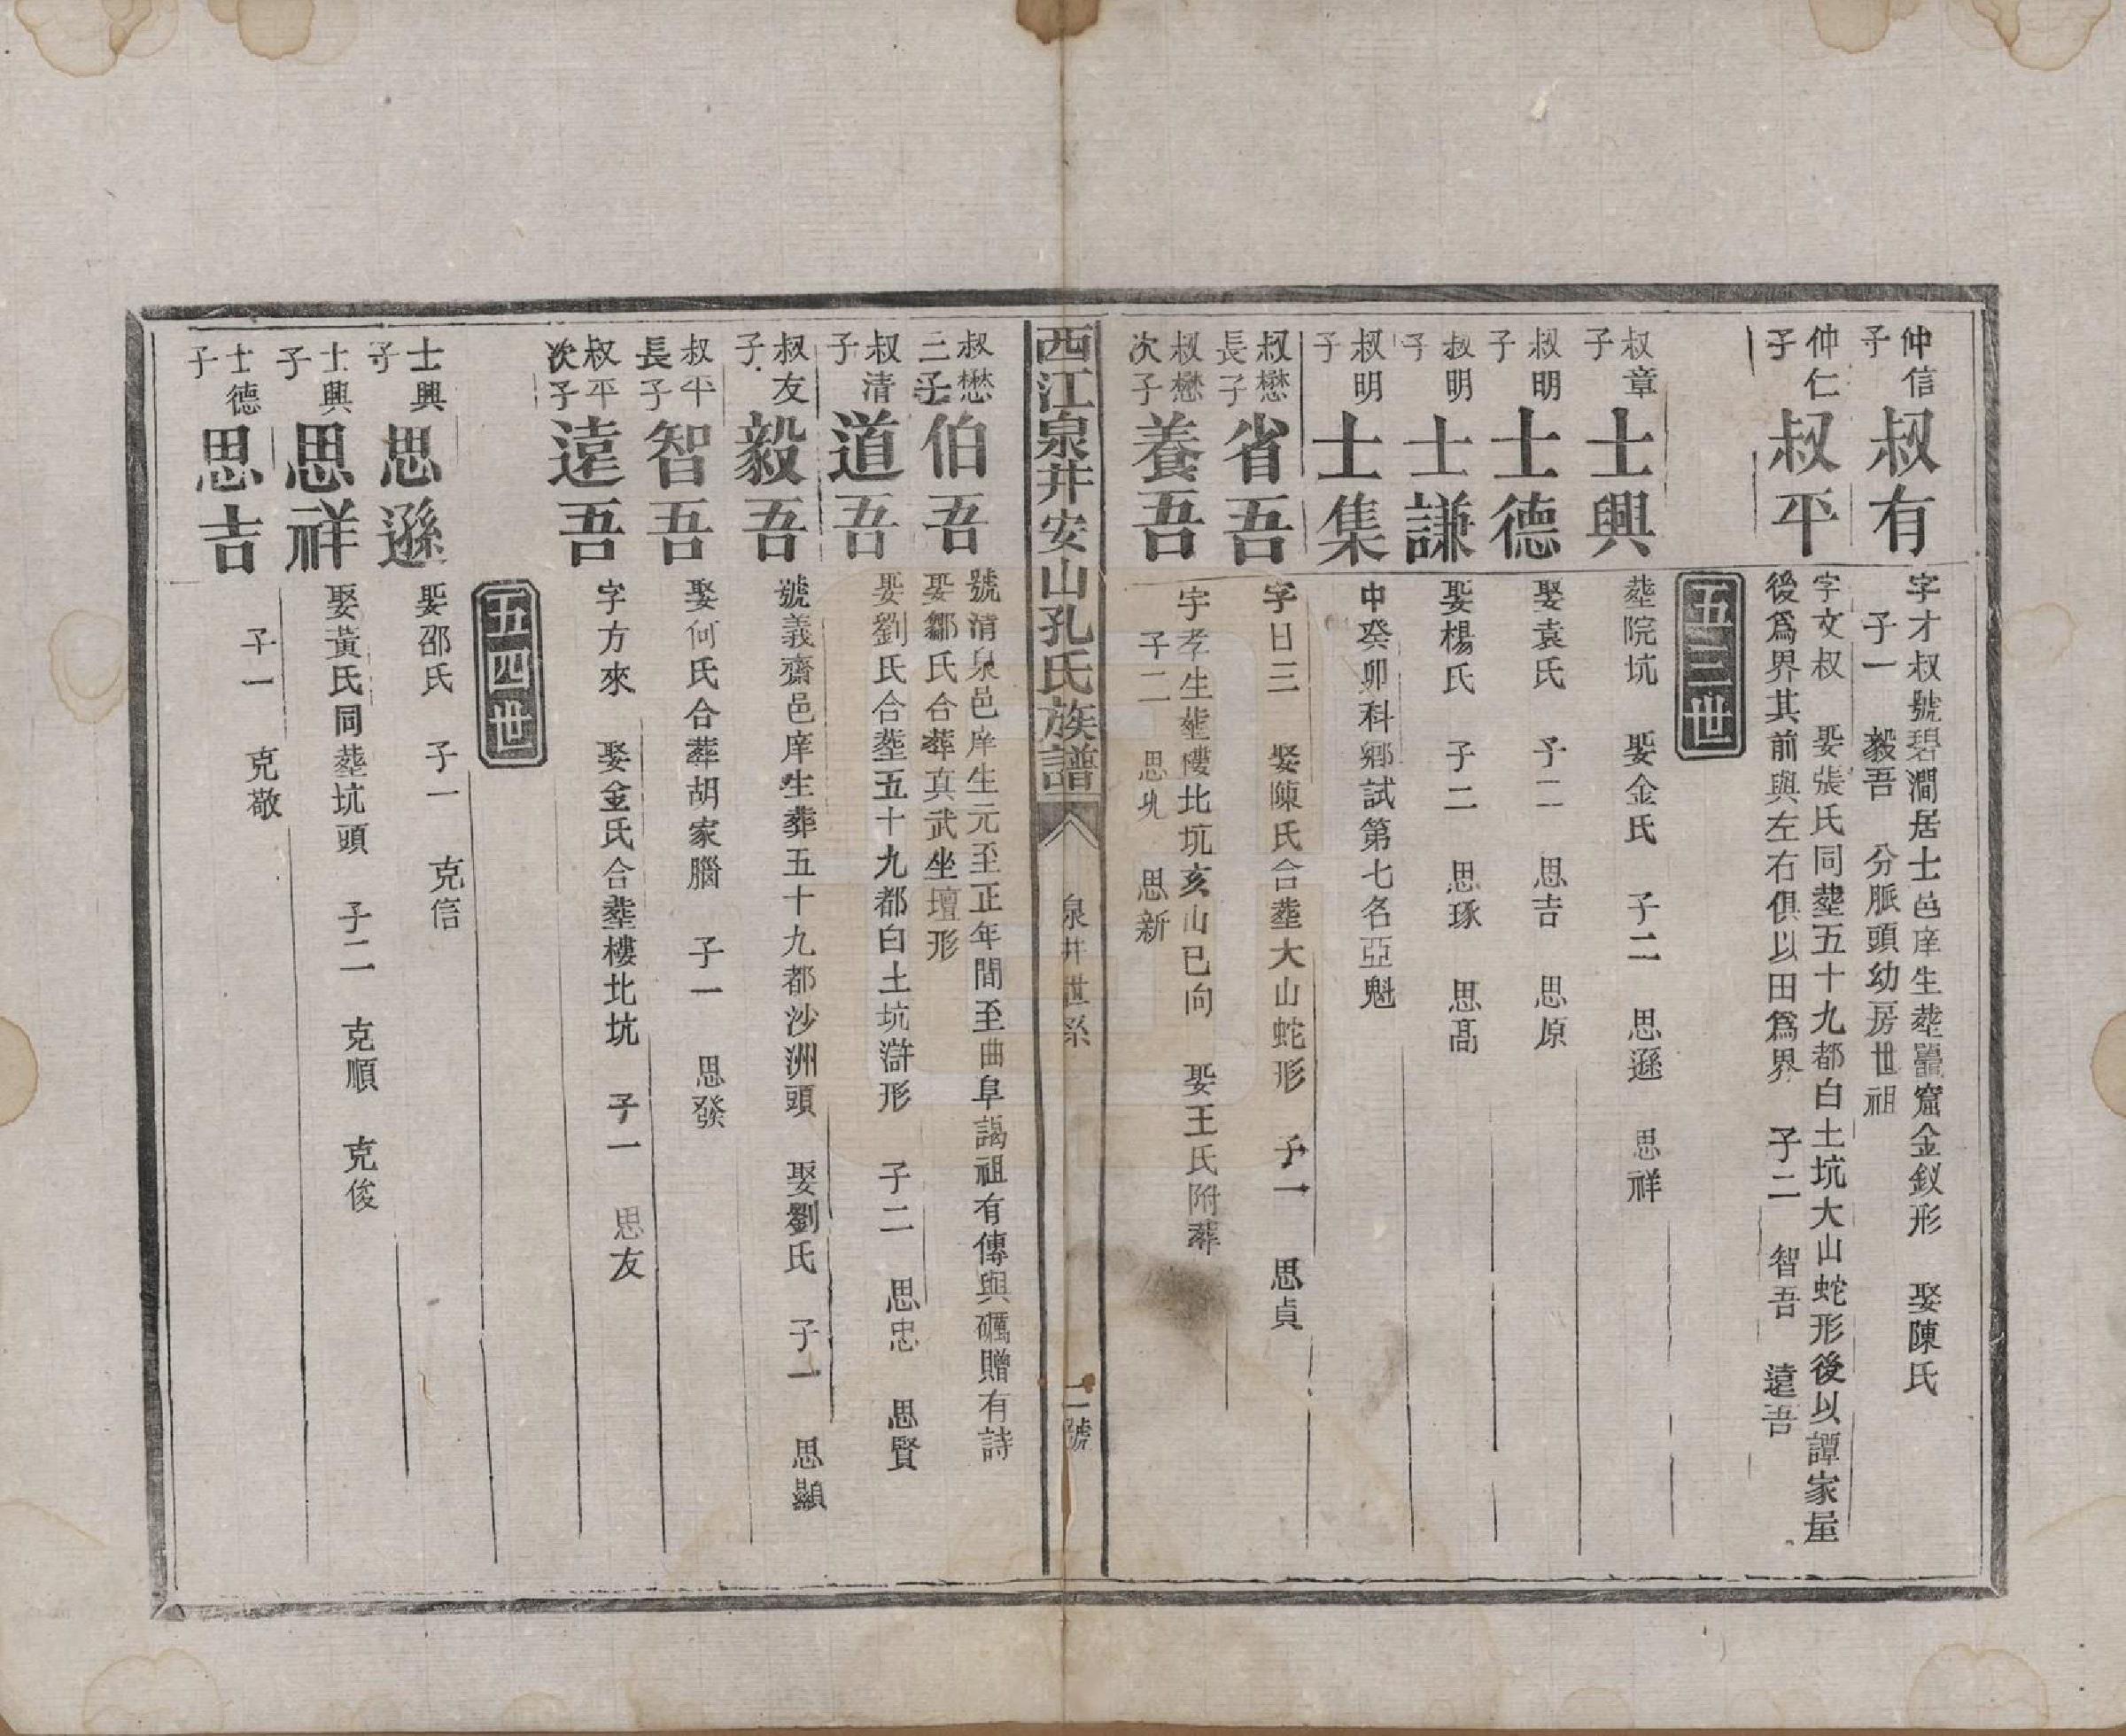 仲信子
叔有
字才叔號碧澗居士邑庠生塟鼍窟金釵形　娶陳氏
子一　毅吾　分脈頭幼房世祖
仲仁子
叔平
字文叔　娶張氏同塟五十九都白土坑大山蛇形後以譚家屋
後爲界其前與左右俱以田爲界　子二　智吾　遠吾
五三世
叔章子
士興
塟院坑　娶金氏　子二　思遜　思祥
叔明子
士德
娶袁氏　子二　思吉　思原
叔明子
士謙
娶楊氏　子二　思琢　思高
叔明子
士集
中癸卯科鄉試第七名亞魁
叔懋長子
省吾
字日三　娶陳氏合塟大山蛇形　子一　思貞
叔懋次子
養吾
字孝生塟樓北坑亥山巳向　娶王氏附葬
子二　思𠃔　思新
西江泉井安山孔氏族譜
泉井世系
二號
叔懋三子
伯吾
號清泉邑庠生元至正年間至曲阜謁祖有傳與礪贈有詩
娶鄒氏合葬真武坐壇形
叔清子
道吾
娶劉氏合塟五十九都白土坑滸形　子二　思忠　思賢
叔友子
毅吾
號義齋邑庠生葬五十九都沙洲頭　娶劉氏　子一　思顯
叔平長子
智吾
娶何氏合葬胡家腦　子一　思發
叔平次子
遠吾
字方來　娶金氏合塟樓北坑　子一　思友
五四世
士興子
思遜
娶邵氏　子一　克信
士興子
思祥
娶黃氏同塟坑頭　子二　克順　克俊
士德子
思吉
子一　克敬